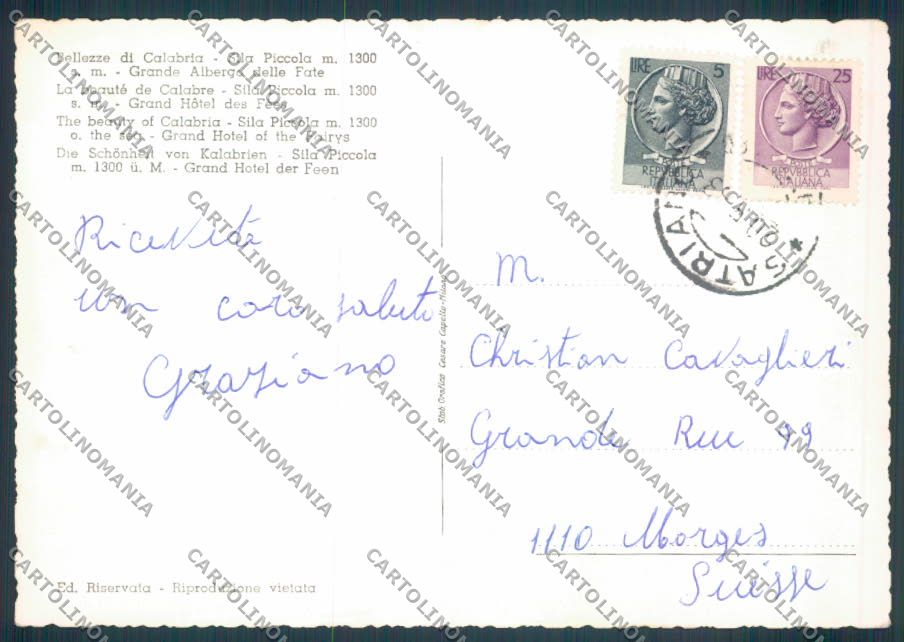 Bellezze di Calabria - Sila Piccola m. 1300
s. m. - Grande Albergo delle Fate
La beauté de Calabre - Sila Piccola m. 1300
s. m. - Grand Hôtel des Fées
The beauty of Calabria - Sila Piccola m. 1300
o. the sea - Grand Hotel of the Fairys
Die Schönheit von Kalabrien - Sila Piccola
m. 1300 ü. M. - Grand Hotel der Feen
LIRE 5
POSTE
REPVBBLICA
ITALIANA
LIRE 25
POSTE
REPVBBLICA
ITALIANA
SATRIA
Ricevete
un caro saluto
Graziano
Stab. Grafico Cesare Capello-Milano
M.
Christian Cavaglieri
Grande Rue 99
1110 Morges
Suisse
Ed. Riservata - Riproduzione vietata
CARTOLINOMANIA